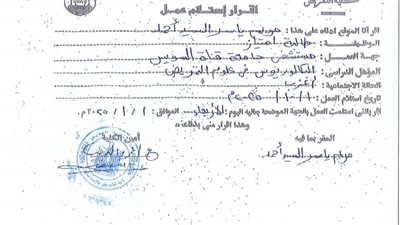 كلية التمريض
اقرار إستلام عمل
اقر أنا الموقع أدناه على هذا : مريم ياسر السيد أحمد
الوظيفة : طالبة امتياز
جهة العمل : مستشفى جامعة قناة السويس
المؤهل الدراسى : بكالوريوس فى علوم التمريض
الحالة الاجتماعية :
تاريخ استلام العمل : ٢٠٢٥/١/١م
اقر بأننى استلمت العمل بالجهة الموضحة بعاليه اليوم : الأربعاء الموافق : ٢٠٢٥/١/١
وهذا اقرار منى بذلك،،
المقر بما فيه
أمين الكلية
مريم ياسر السيد أحمد